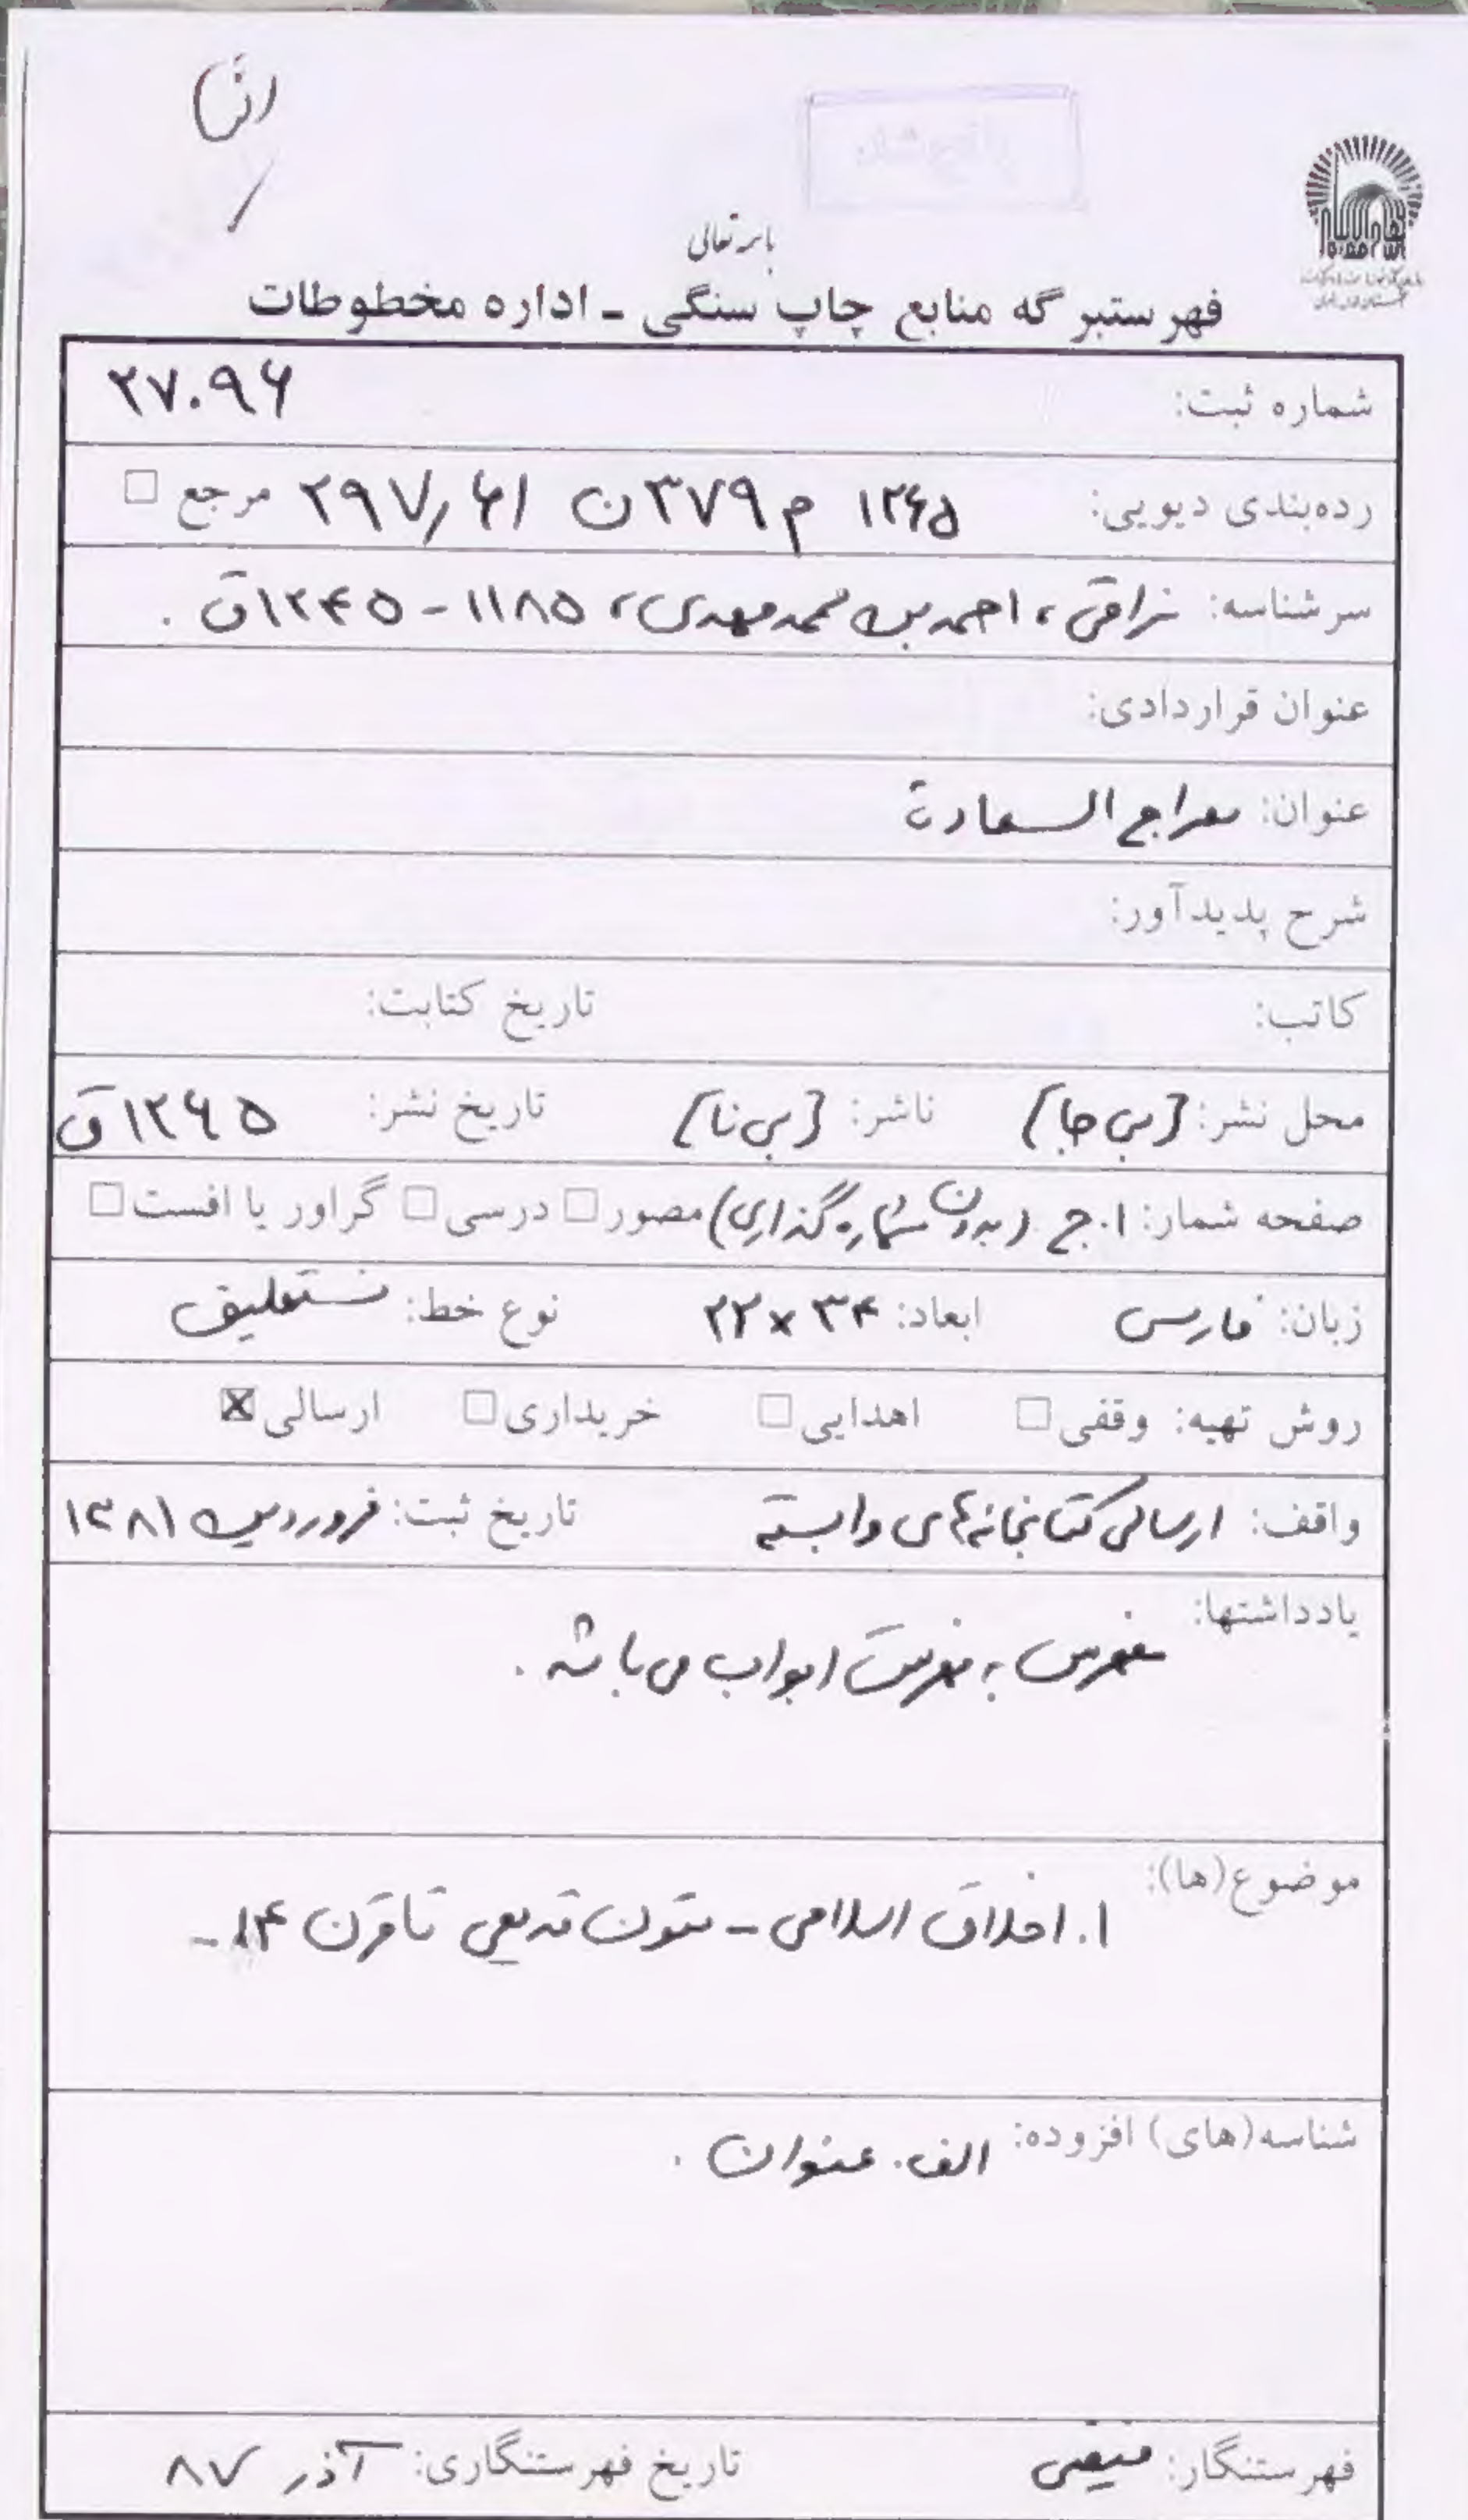 باسمه تعالی
فهرستبرگه منابع چاپ سنگی ـ اداره مخطوطات
شماره ثبت: ۲۷۰۹۶
رده‌بندی دیویی: ۱۲۶۵ م ۳۷۹ ن ۲۹۷/۶۱ مرجع □
سرشناسه: نراقی، احمد بن محمد مهدی، ۱۱۸۵ - ۱۲۴۵ ق.
عنوان قراردادی:
عنوان: معراج السعادة
شرح پدیدآور:
کاتب: تاریخ کتابت:
محل نشر: [بی جا] ناشر: [بی نا] تاریخ نشر: ۱۲۶۵ ق
صفحه شمار: ۱.ج (بدون شماره گذاری) مصور □ درسی □ گراور یا افست □
زبان: فارسی ابعاد: ۳۴ × ۲۲ نوع خط: نستعلیق
روش تهیه: وقفی □ اهدایی □ خریداری □ ارسالی ☒
واقف: ارسالی کتابخانه‌های وابسته تاریخ ثبت: فروردین ۱۳۸۱
یادداشتها:
به فهرست ابواب می باشد.
موضوع(ها):
۱. اخلاق اسلامی - متون قدیمی تا قرن ۱۴ -
شناسه(های) افزوده: الف. عنوان.
فهرستنگار: تاریخ فهرستنگاری: آذر ۸۷